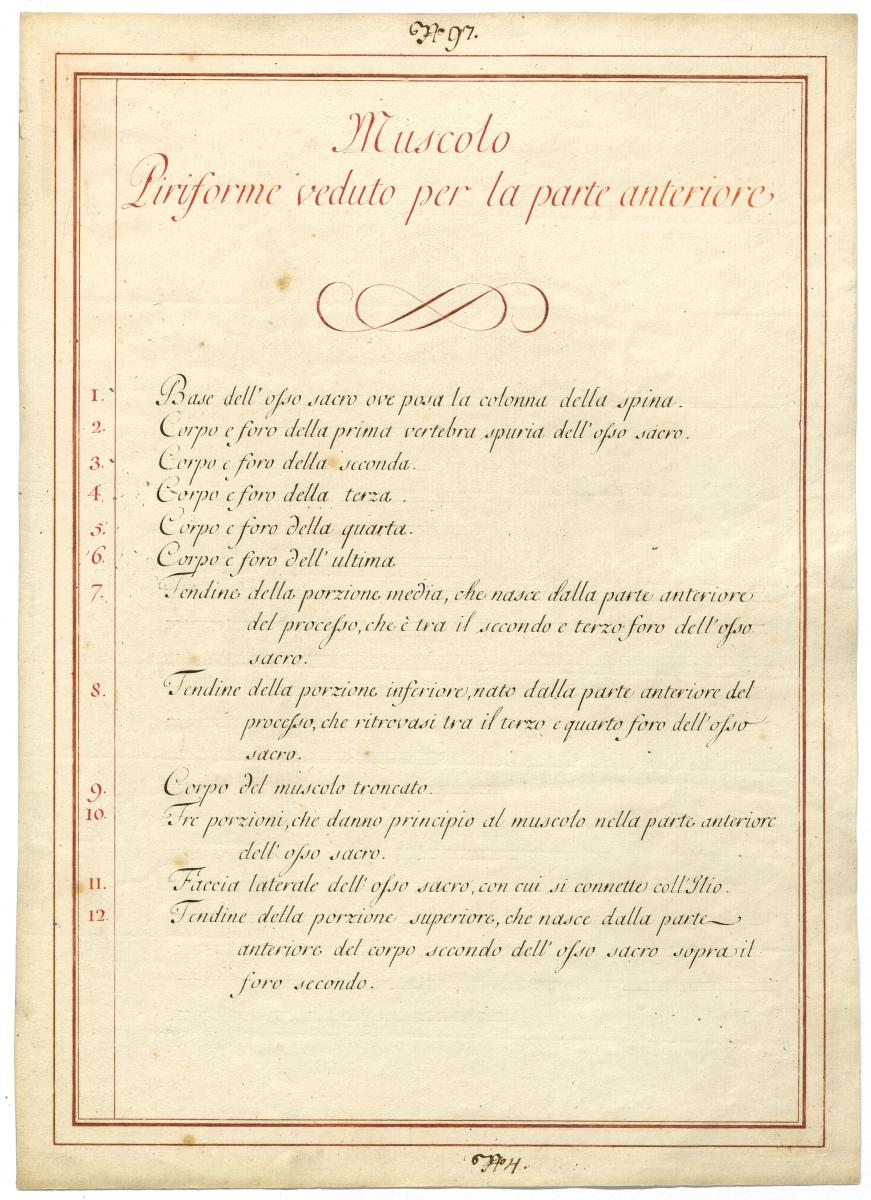 No 97.
Muscolo
Piriforme veduto per la parte anteriore
1. Base dell' oſso sacro ove posa la colonna della spina.
2. Corpo e foro della prima vertebra spuria dell' oſso sacro.
3. Corpo e foro della seconda.
4. Corpo e foro della terza.
5. Corpo e foro della quarta.
6. Corpo e foro dell' ultima
7. Tendine della porzione media, che nasce dalla parte anteriore
del proceſso, che è tra il secondo e terzo foro dell' oſso
sacro.
8. Tendine della porzione inferiore, nato dalla parte anteriore del
proceſso, che ritrovasi tra il terzo e quarto foro dell' oſso
sacro.
9. Corpo del muscolo troncato.
10. Tre porzioni, che danno principio al muscolo nella parte anteriore
dell' oſso sacro.
11. Faccia laterale dell' oſso sacro, con cui si connette coll' Ilio.
12. Tendine della porzione superiore, che nasce dalla parte
anteriore del corpo secondo dell' oſso sacro sopra il
foro secondo.
No 4.